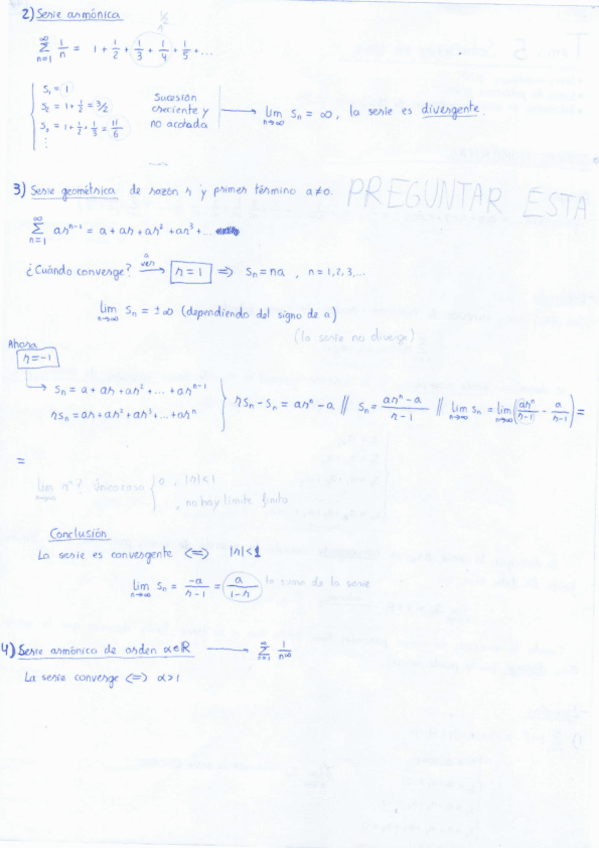 2) Serie armónica
1/2
∑_{n=1}^{∞} 1/n = 1 + 1/2 + 1/3 + 1/4 + 1/5 + ...
S₁ = 1
S₂ = 1 + 1/2 = 3/2
S₃ = 1 + 1/2 + 1/3 = 11/6
⋮
Sucesión creciente y no acotada → lim_{n→∞} Sₙ = ∞, la serie es divergente.
3) Serie geométrica de razón r y primer término a≠0. PREGUNTAR ESTA
∑_{n=1}^{∞} arⁿ⁻¹ = a + ar + ar² + ar³ + ...
¿Cuándo converge? a ver → r = 1 ⇒ Sₙ = na , n = 1,2,3,...
lim_{n→∞} Sₙ = ±∞ (dependiendo del signo de a)
(la serie no diverge)
Ahora
r = -1
→ Sₙ = a + ar + ar² + ... + arⁿ⁻¹
rSₙ = ar + ar² + ar³ + ... + arⁿ
rSₙ - Sₙ = arⁿ - a // Sₙ = (arⁿ - a)/(r - 1) // lim_{n→∞} Sₙ = lim_{n→∞} (arⁿ/(r-1) - a/(r-1)) =
=
lim_{n→∞} rⁿ? Único caso { 0 , |r| < 1
, no hay límite finito
Conclusión
La serie es convergente <=> |r| < 1
lim_{n→∞} Sₙ = -a/(r - 1) = a/(1 - r) la suma de la serie
4) Serie armónica de orden α∈ℝ → ∑_{n=1}^{∞} 1/n^α
La serie converge <=> α > 1